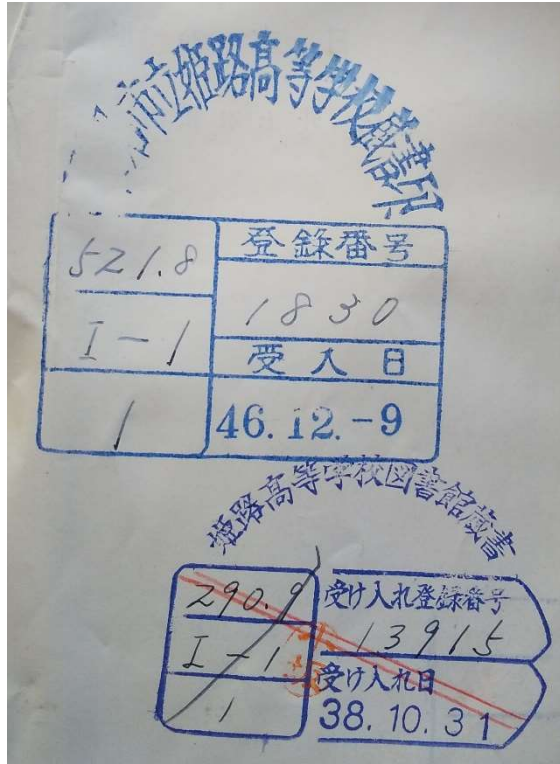 市立姫路高等学校蔵書印
521.8
登録番号
I-1
1830
受入日
1
46.12.-9
姫路高等学校図書館蔵書
290.9
受け入れ登録番号
I-1
13915
受け入れ日
1
38.10.31